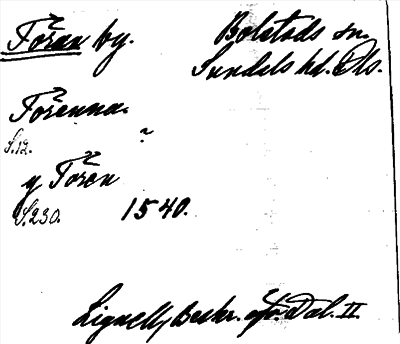 Foran by.
Bolstads sn.
Sundals hd. Dls.
Forenna.
S. 12.
?
y Foren
S. 230.
1540.
Lignell, Beskr. öfv. Dal. II.